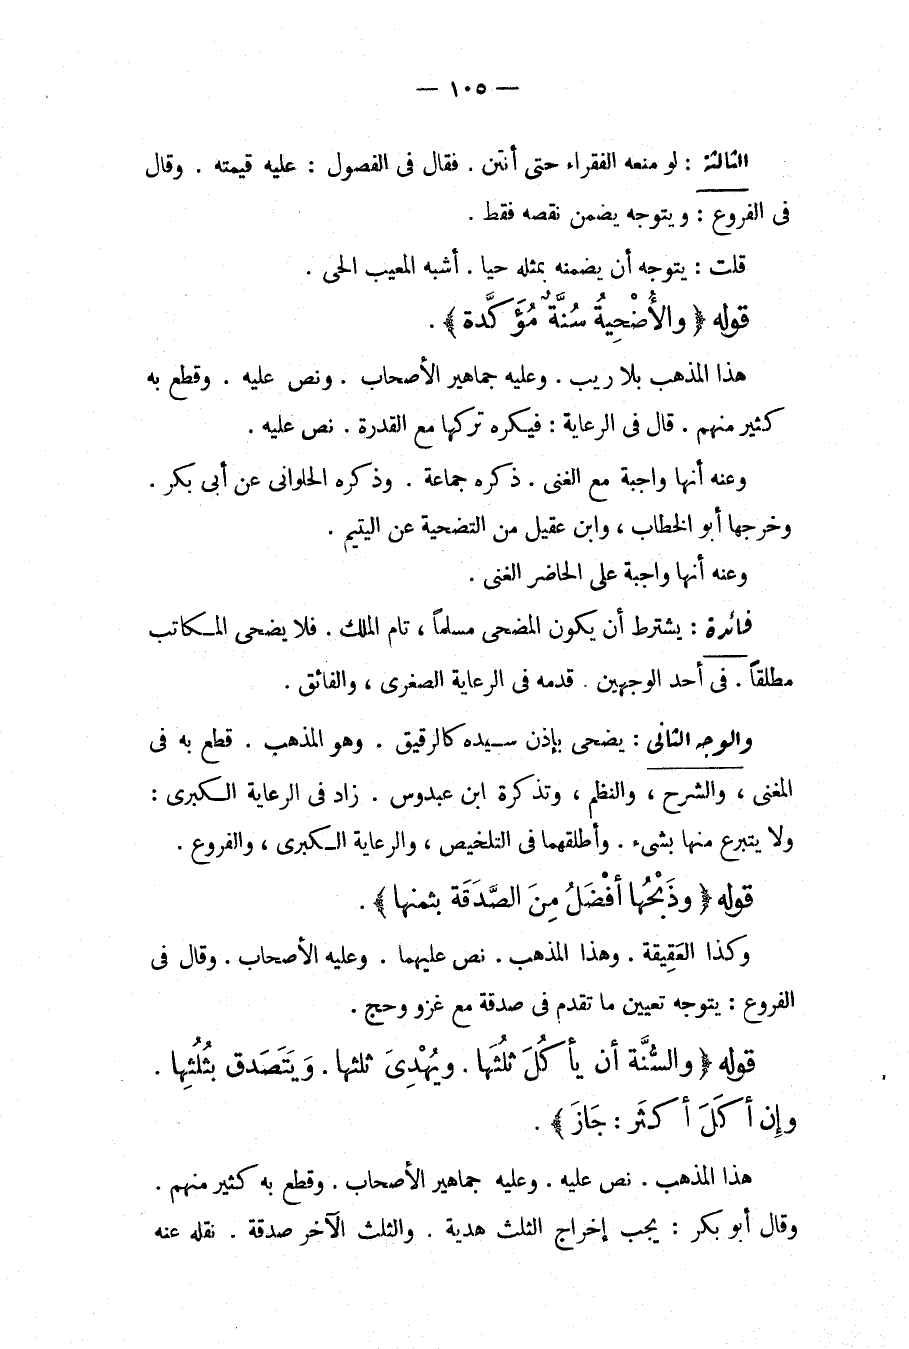 — ١٠٥ —
الثالثة : لو منعه الفقراء حتى أنتن . فقال فى الفصول : عليه قيمته . وقال
فى الفروع : ويتوجه يضمن نقصه فقط .
قلت : يتوجه أن يضمنه بمثله حيا . أشبه المعيب الحى .
قوله ﴿ والأُضْحِيةُ سُنَّةٌ مُؤَكَّدة ﴾ .
هذا المذهب بلا ريب . وعليه جماهير الأصحاب . ونص عليه . وقطع به
كثير منهم . قال فى الرعاية : فيكره تركها مع القدرة . نص عليه .
وعنه أنها واجبة مع الغنى . ذكره جماعة . وذكره الحلوانى عن أبى بكر .
وخرجها أبو الخطاب ، وابن عقيل من التضحية عن اليتيم .
وعنه أنها واجبة على الحاضر الغنى .
فائدة : يشترط أن يكون المضحى مسلماً ، تام الملك . فلا يضحى المكاتب
مطلقاً . فى أحد الوجهين . قدمه فى الرعاية الصغرى ، والفائق .
والوجه الثانى : يضحى بإذن سيده كالرقيق . وهو المذهب . قطع به فى
المغنى ، والشرح ، والنظم ، وتذكرة ابن عبدوس . زاد فى الرعاية الكبرى :
ولا يتبرع منها بشىء . وأطلقهما فى التلخيص ، والرعاية الكبرى ، والفروع .
قوله ﴿ وذَبْحُها أفْضَلُ مِنَ الصَّدَقَة بثمنها ﴾ .
وكذا العَقِيقة . وهذا المذهب . نص عليهما . وعليه الأصحاب . وقال فى
الفروع : يتوجه تعيين ما تقدم فى صدقة مع غزو وحج .
قوله ﴿ والسُّنَّة أن يأكُلَ ثلُثَها . ويُهْدِىَ ثلثها . وَيَتَصَدق بثُلُثِها .
وإن أكَلَ أكثَر : جَازَ ﴾ .
هذا المذهب . نص عليه . وعليه جماهير الأصحاب . وقطع به كثير منهم .
وقال أبو بكر : يجب إخراج الثلث هدية . والثلث الآخر صدقة . نقله عنه